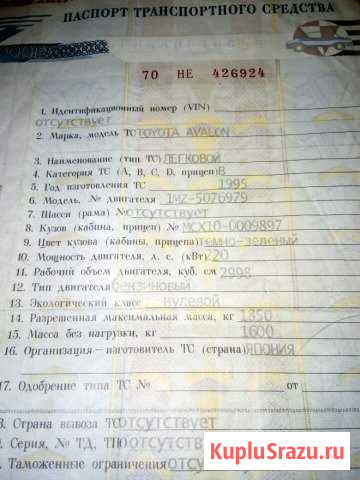 ПАСПОРТ ТРАНСПОРТНОГО СРЕДСТВА
70 НЕ 426924
1. Идентификационный номер (VIN)
отсутствует
2. Марка, модель ТС TOYOTA AVALON
3. Наименование (тип ТС) ЛЕГКОВОЙ
4. Категория ТС (A, B, C, D, прицеп) B
5. Год изготовления ТС 1995
6. Модель, № двигателя 1MZ-5076979
7. Шасси (рама) № отсутствует
8. Кузов (кабина, прицеп) № MCX10-0009897
9. Цвет кузова (кабины, прицепа) темно-зеленый
10. Мощность двигателя, л. с. (кВт) 20
11. Рабочий объем двигателя, куб. см 2998
12. Тип двигателя бензиновый
13. Экологический класс нулевой
14. Разрешенная максимальная масса, кг 1850
15. Масса без нагрузки, кг 1600
16. Организация—изготовитель ТС (страна) ЯПОНИЯ
17. Одобрение типа ТС № от
8. Страна вывоза ТС отсутствует
. Серия, № ТД, ТПО отсутст
. Таможенные ограничения отсу
KupluSrazu.ru